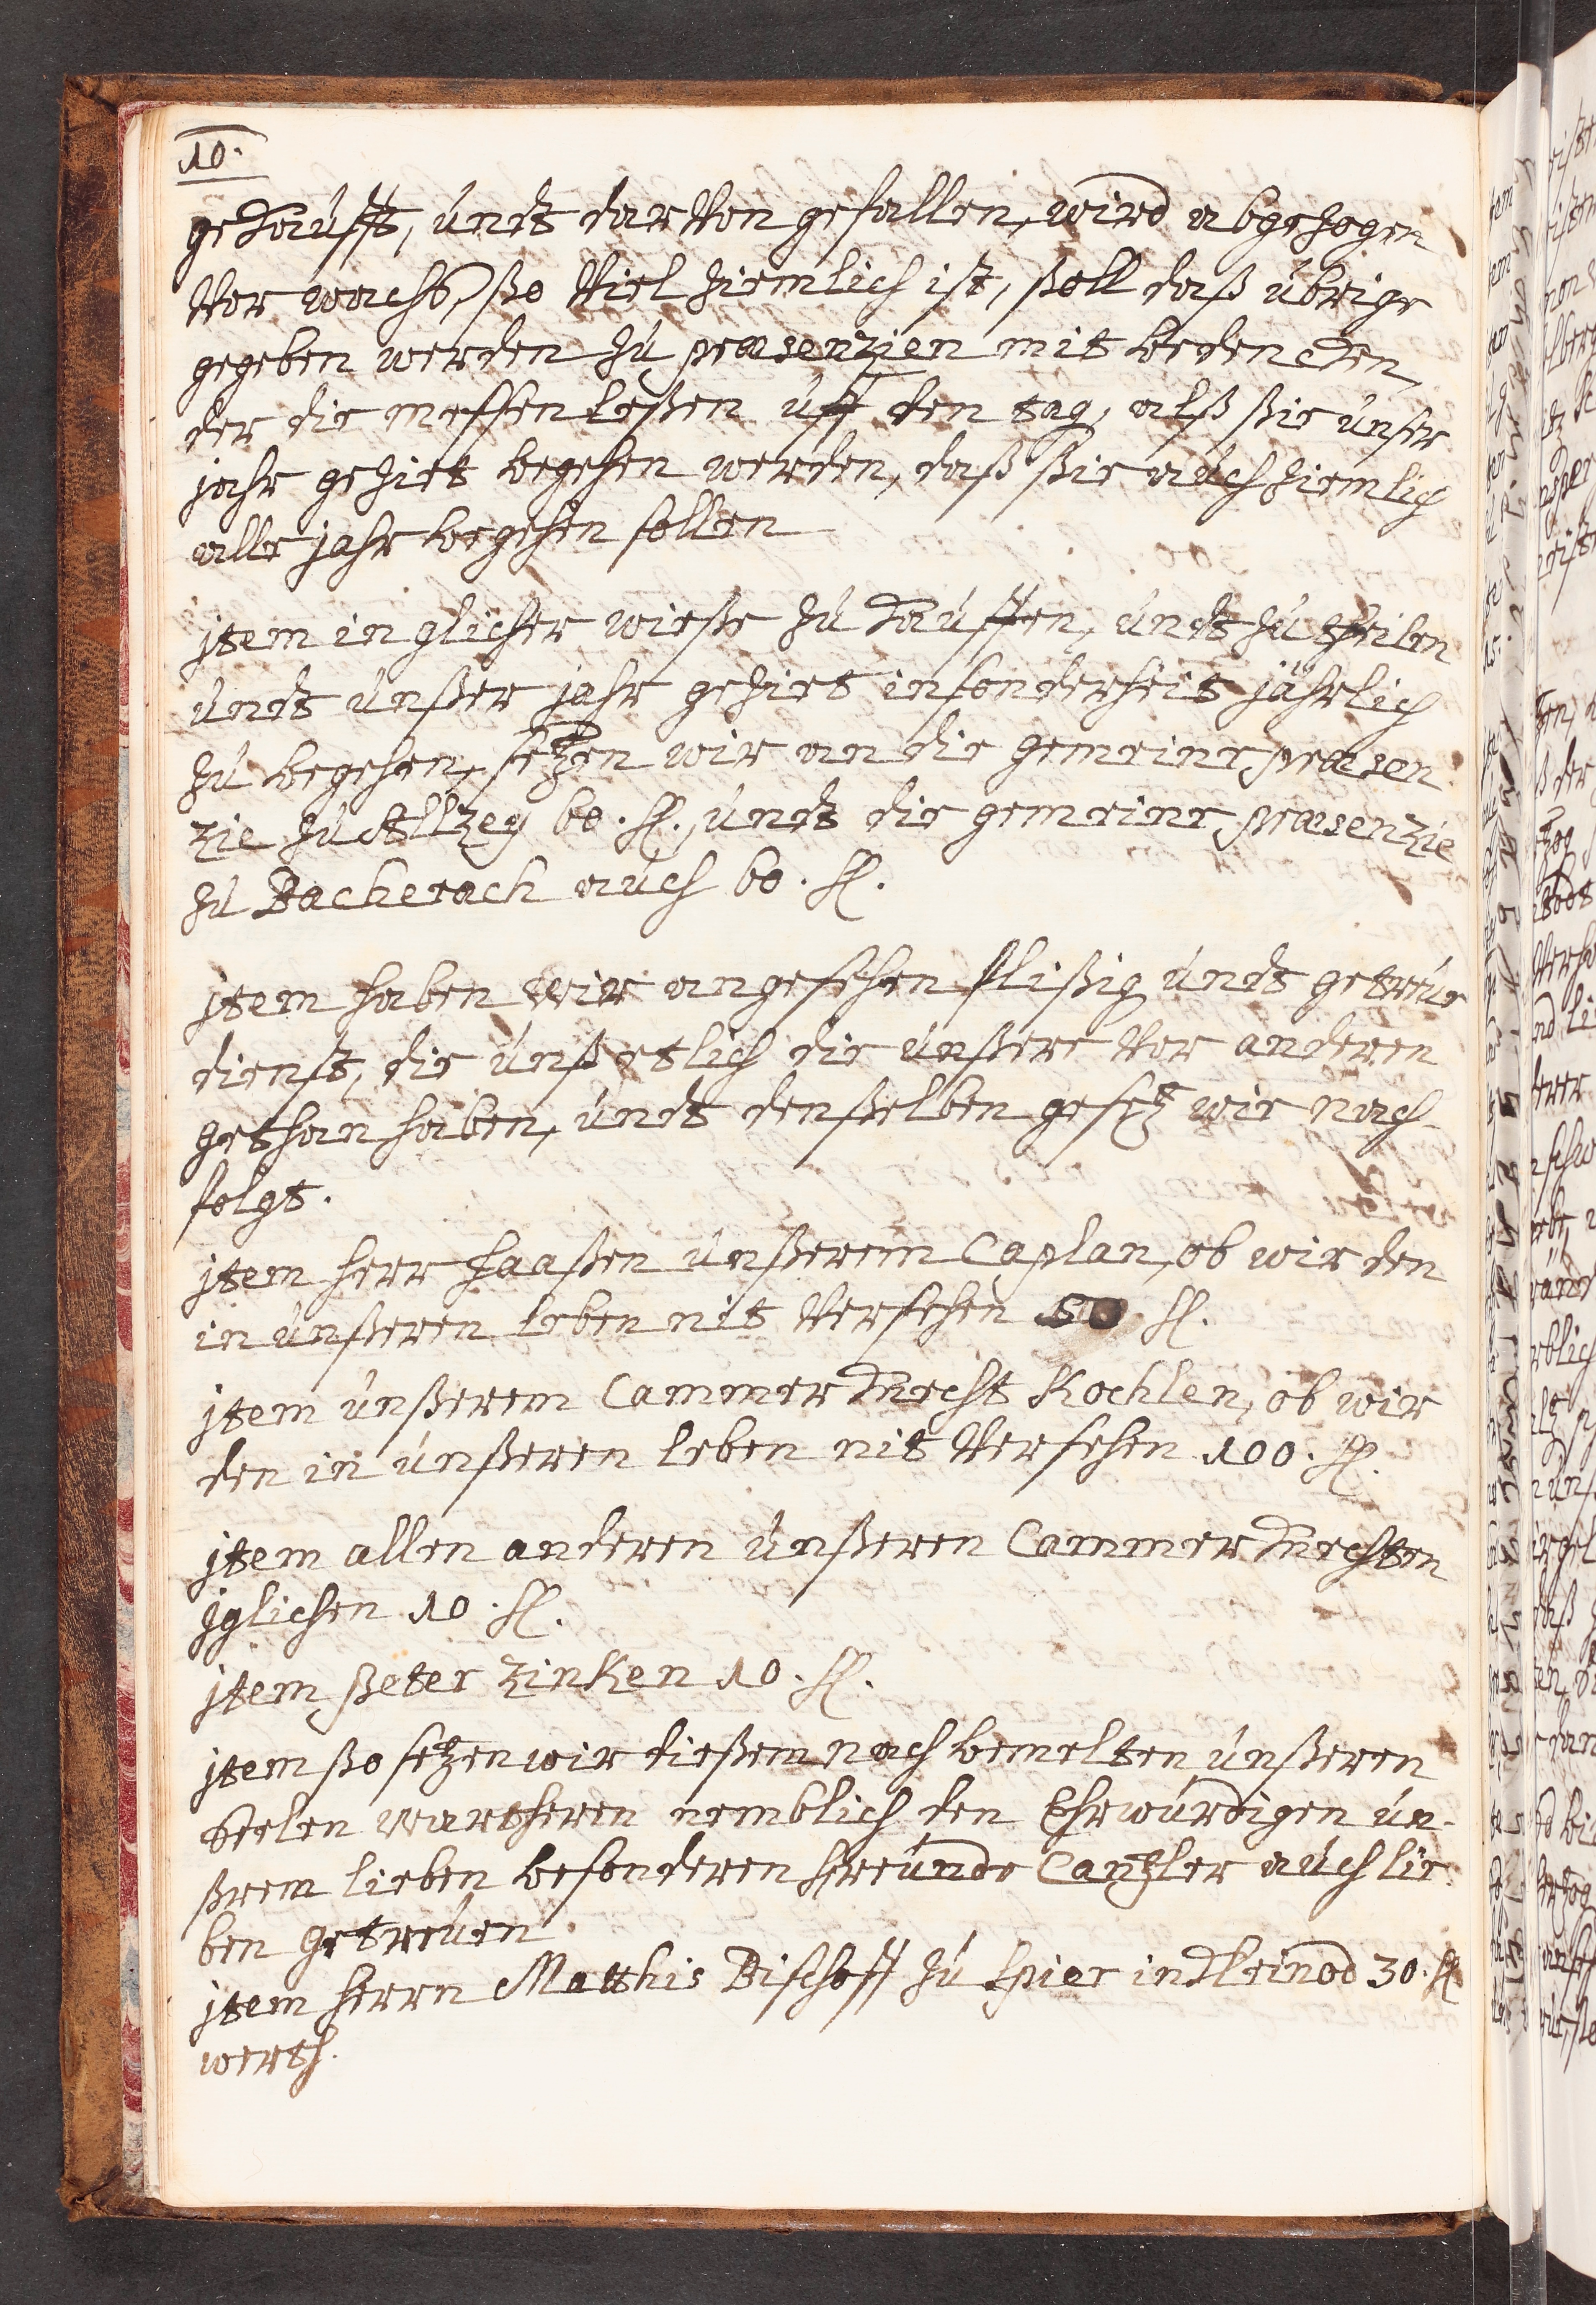 10.
gekaufft, undt darvon gefallen, wird abgezogen
vor wachß, ßo viel ziemlich ist, ßoll daß übrige
gegeben werden zu præsenzien mit bedencken,
der die messen leßen uff den tag, alß ßie unser
jahr geziet begehen werden, daß ßie auch ziemlich
alle jahr begehen sollen
jtem in glicher wieße zu kauffen, undt zu theilen
undt unßer jahr geziet insonderheit jährlich
zu begehen, setzen wir an die gemeine præsen
zie zu Altzey 60. fl., undt die gemeine præsenzie
zu Bacherach auch 60. fl.
jtem haben wir angesehen flißig undt getreue
dienst, die unß etlich die unßere vor anderen
gethan haben, undt denßelben gesetz wie nach-
folgt.
jtem herr haaßen unßerem Caplan, ob wir den
in unßeren leben nit versehen 50 fl.
jtem unßerem Cammer knecht Kochlen, ob wir
den in unßeren leben nit versehen 100. fl.
jtem allen anderen unßeren Cammer knechten
jglichen 10. fl.
jtem peter Zinken 10. fl.
jtem ßo setzen wir dießem nach bemelten unßeren
Seelen wartheren nemblich den Ehrwürdigen un-
ßrem lieben besonderen freunde Cantzler auch lie
ben getreuen
jtem herrn Matthis Bischoff zu Spier in kleinod 30. fl
werth.